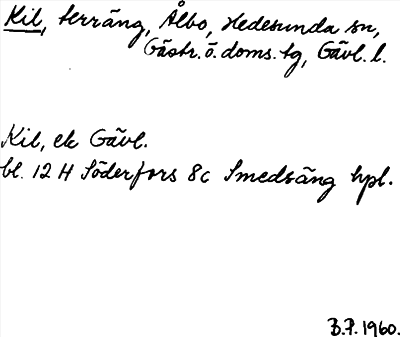 Kil, terräng, Ålbo, Hedesunda sn,
Gästr. ö. doms. tg, Gävl. l.
Kil, ek Gävl.
bl. 12 H Söderfors 8c Smedsäng hpl.
B.P. 1960.